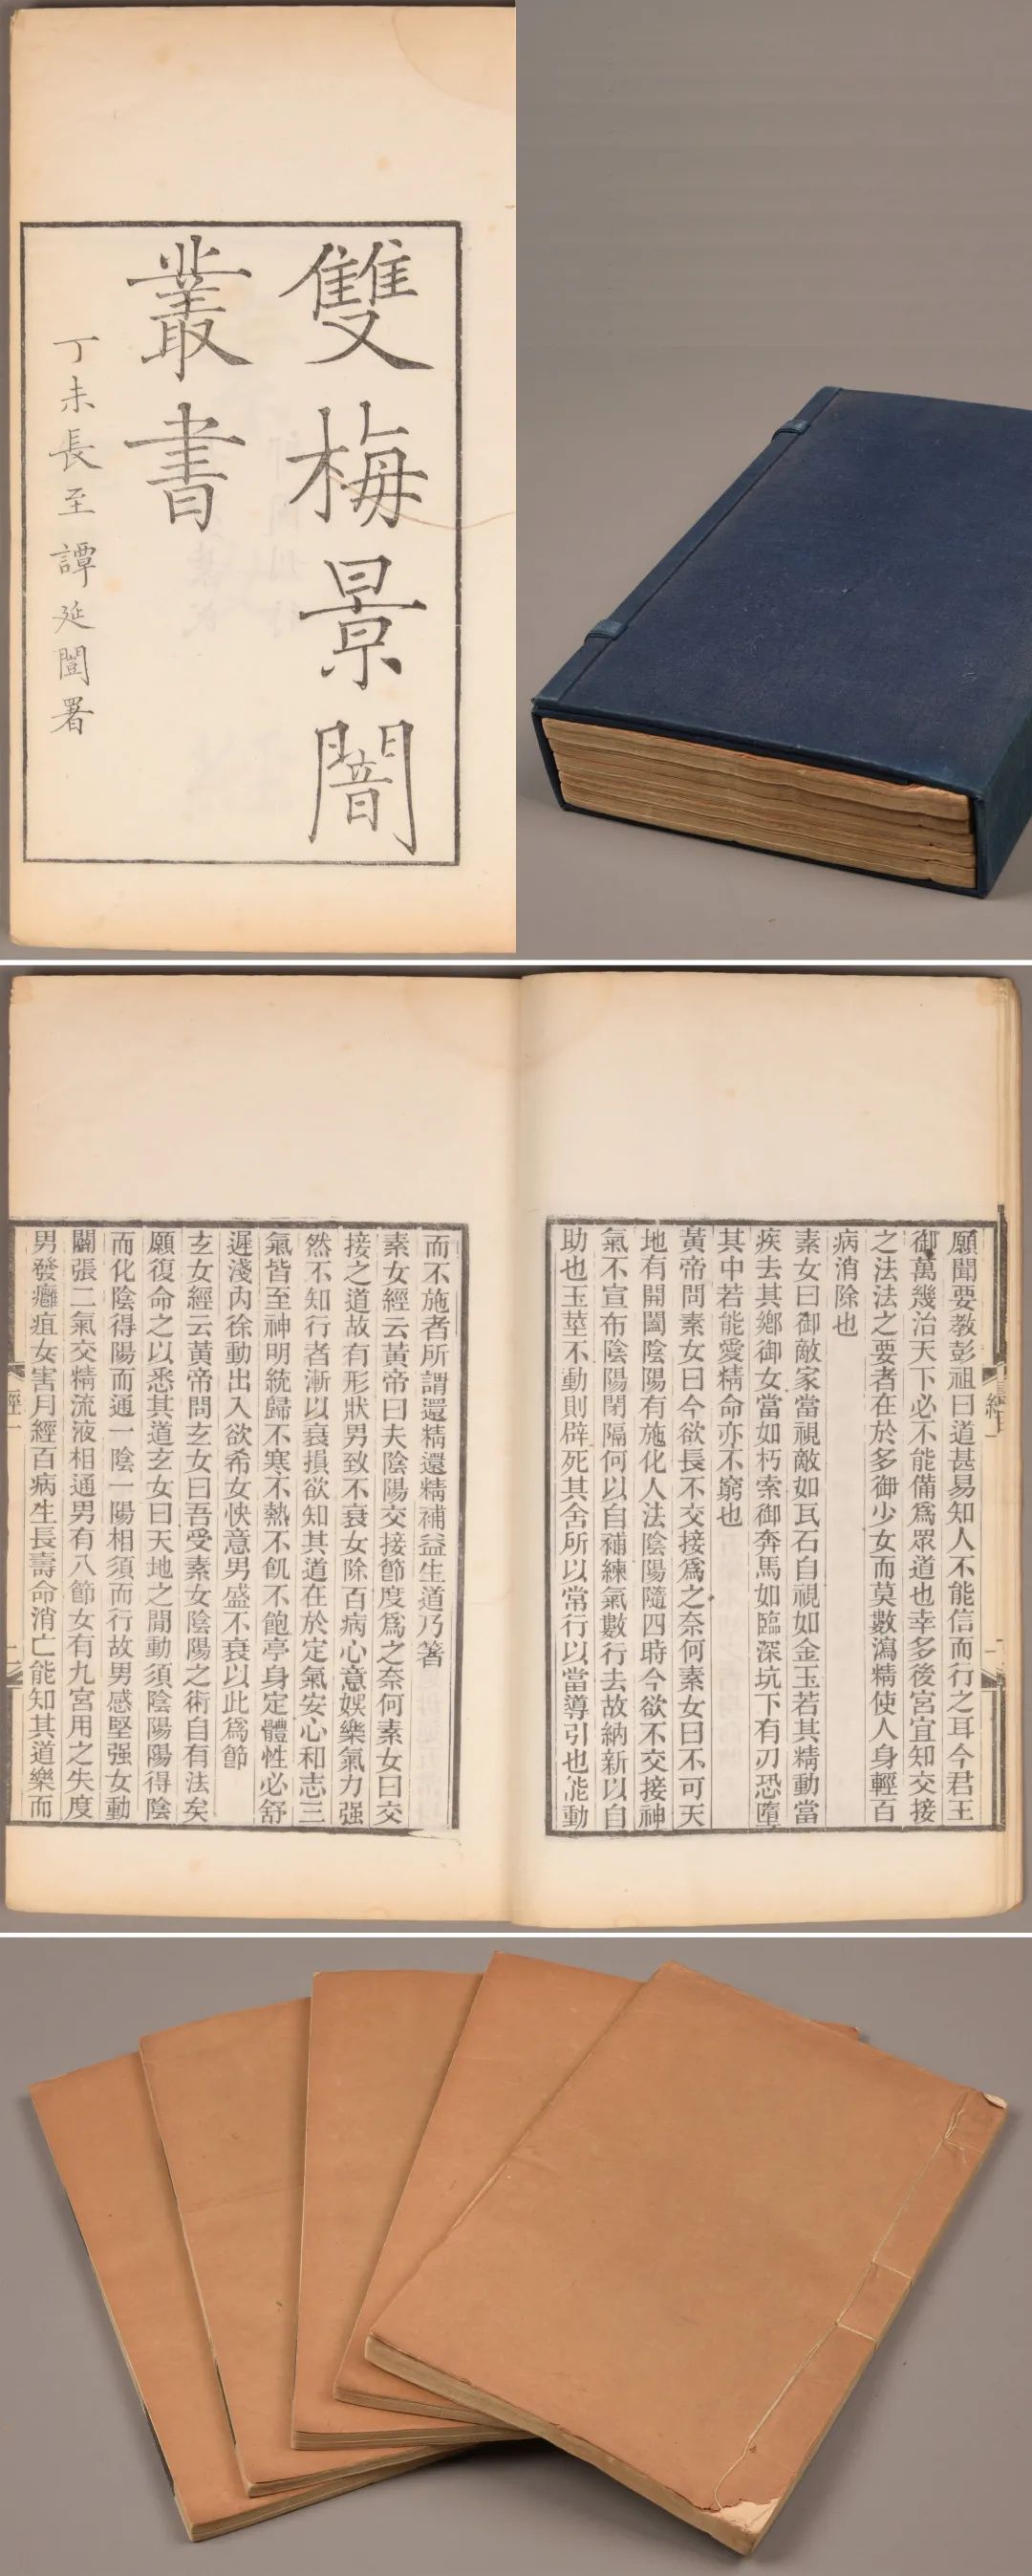 雙梅景闇
叢書
丁未長至譚延闓署
願聞要教彭祖曰道甚易知人不能信而行之耳今君王
御萬幾治天下必不能備爲眾道也幸多後宮宜知交接
之法法之要者在於多御少女而莫數瀉精使人身輕百
病消除也
素女曰御敵家當視敵如瓦石自視如金玉若其精動當
疾去其鄉御女當如朽索御奔馬如臨深坑下有刃恐墮
其中若能愛精命亦不窮也
黃帝問素女曰今欲長不交接爲之奈何素女曰不可天
地有開闔陰陽有施化人法陰陽隨四時今欲不交接神
氣不宣布陰陽閉隔何以自補練氣數行去故納新以自
助也玉莖不動則辟死其舍所以常行以當導引也能動
而不施者所謂還精還精補益生道乃著
素女經云黃帝曰夫陰陽交接節度爲之奈何素女曰交
接之道故有形狀男致不衰女除百病心意娛樂氣力强
然不知行者漸以衰損欲知其道在於定氣安心和志三
氣皆至神明統歸不寒不熱不飢不飽亭身定體性必舒
遲淺內徐動出入欲希女快意男盛不衰以此爲節
玄女經云黃帝問玄女曰吾受素女陰陽之術自有法矣
願復命之以悉其道玄女曰天地之閒動須陰陽陽得陰
而化陰得陽而通一陰一陽相須而行故男感堅强女動
闢張二氣交精流液相通男有八節女有九宮用之失度
男發癰疽女害月經百病生長壽命消亡能知其道樂而
經一